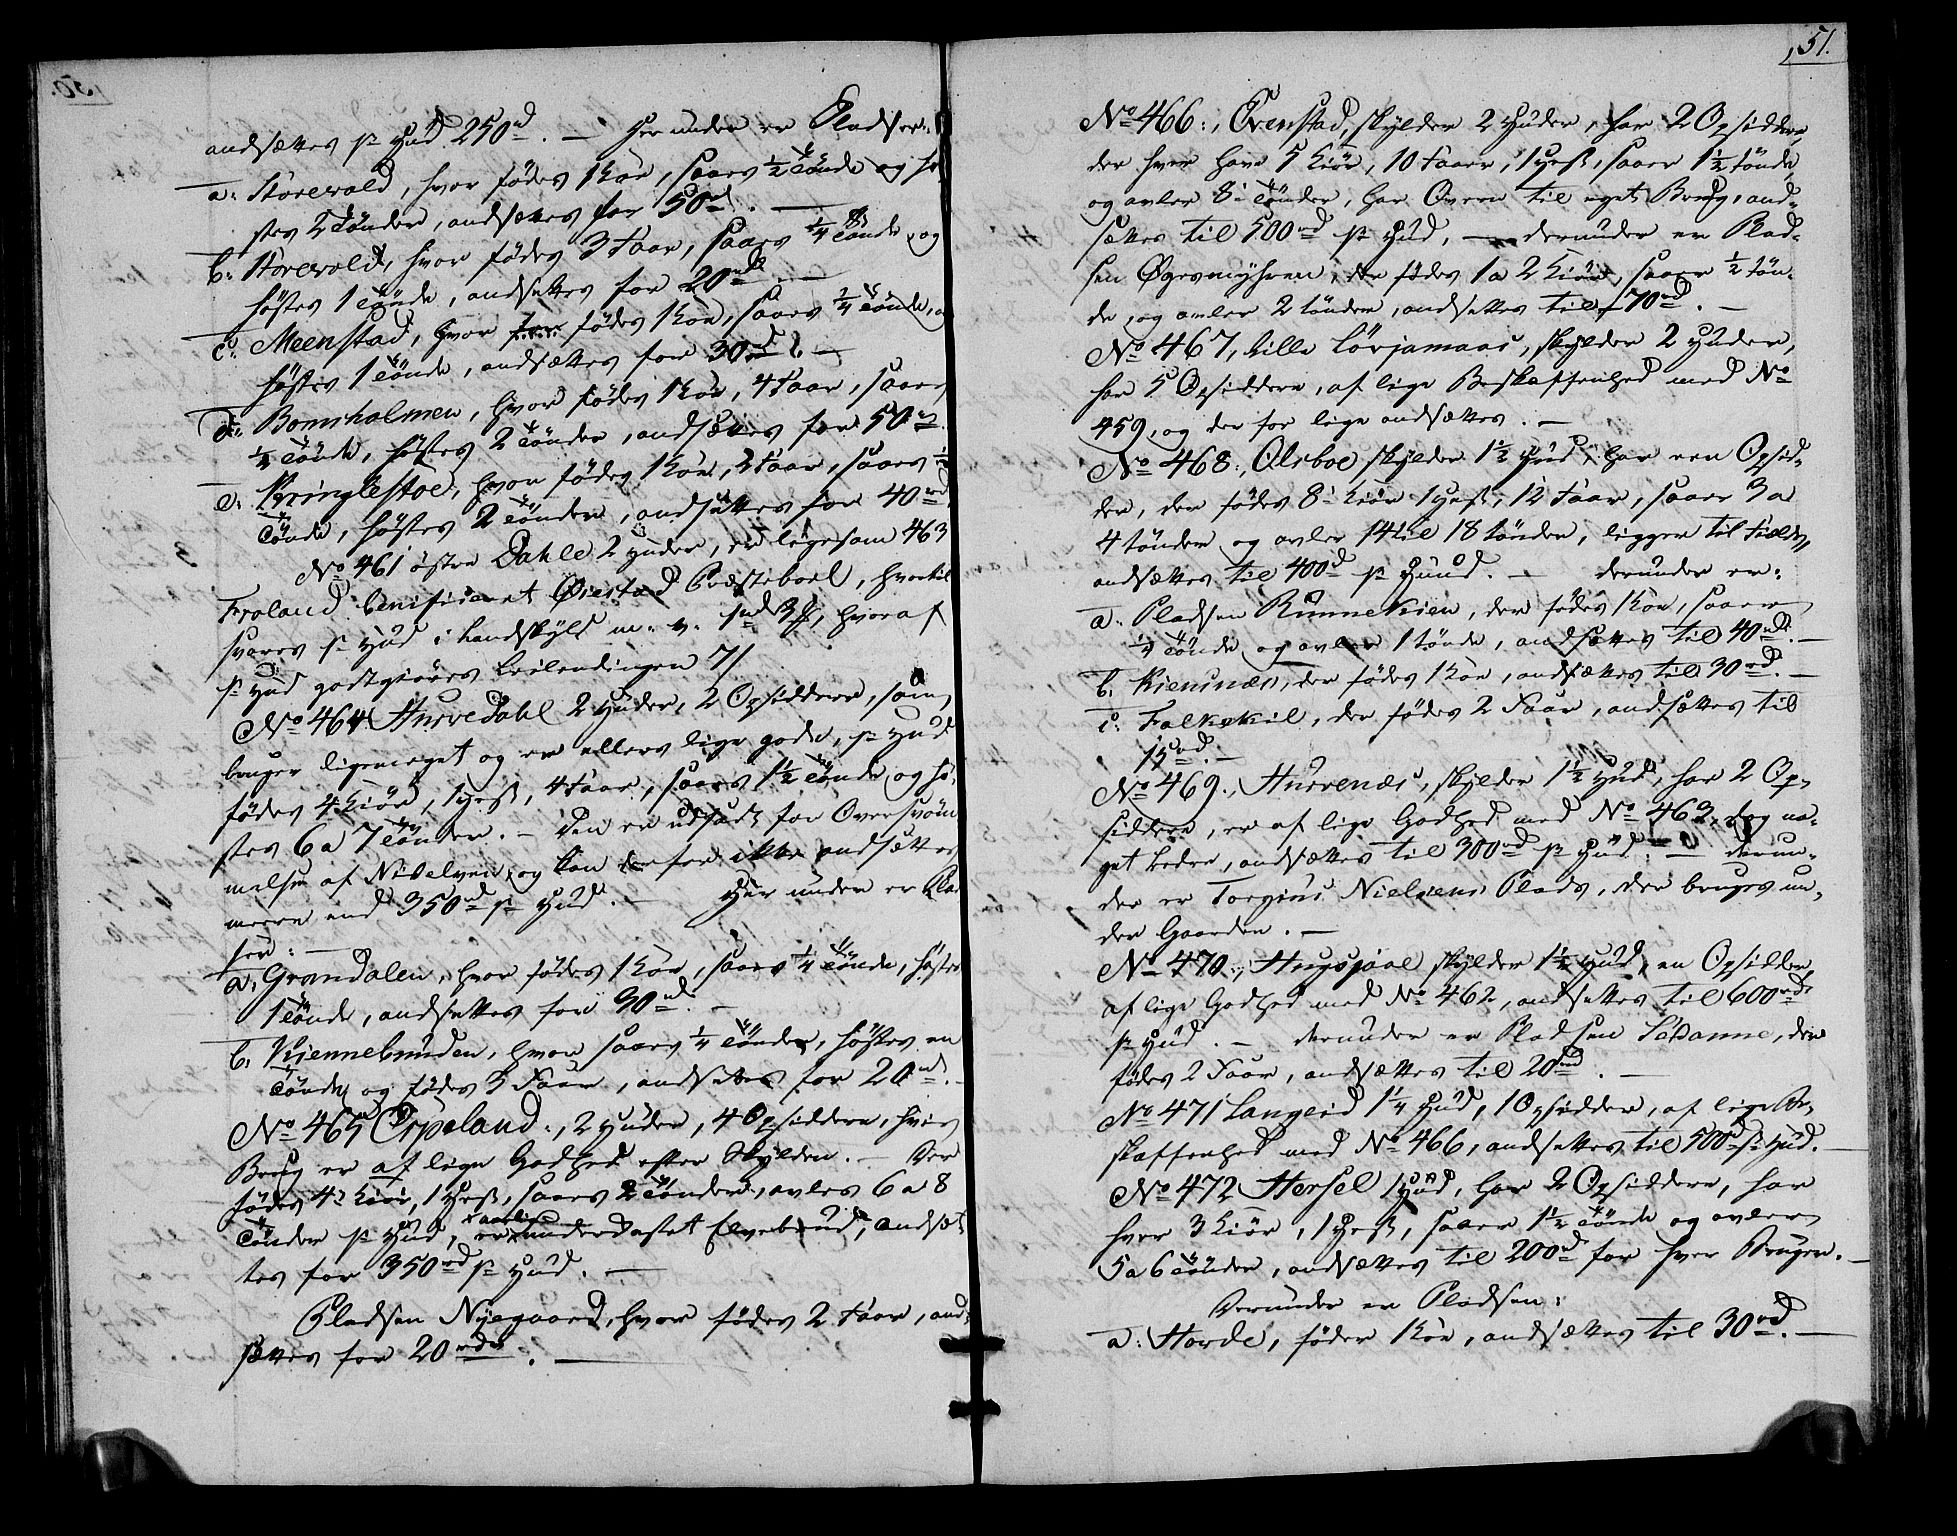 andsættes pr Hud 250rd. — Her under er Pladser:
a: Storevold, hvor födes 1 Koe, saaes ½ Tönde og hö-
stes 2 Tönder, andsættes for 50rd. —
b: Storevold, hvor födes 3 Faar, saaes ¼ Tönde og
höstes 1 Tönde, andsættes for 20rd. —
c: Meenstad, hvor födes 1 Koe, saaes ¼ Tönde, og
höstes 1 Tönde, andsættes for 30rd. —
d: Bomsholmen, hvor födes 1 Koe, 4 Faar, saaes
½ Tönde, höstes 2 Tönder, andsættes for 50rd
e: Kringlestoe, hvor födes 1 Koe, 2 Faar, saaes ½
Tönde, höstes 2 Tönder, andsættes for 40rd
No 461 östre Dahle 2 Huder, er ligesom 463
Froland beneficeret Öiestad Præsteboel, hvortil
svares pr Hud i Landskyld m. v. 1rd 3ß, hvoraf
pr Hud godtgiöres Leilendingen 7ß
No 464 Hurvedahl 2 Huder, 2 Opsiddere, som
bruger ligemeget og er ellers lige gode, pr Hud
födes 4 Kiör, 1 Hest, 4 Faar, saaes 1½ Tönde og hö-
stes 6 a 7 Tönder. — Den er udsadt for Oversvöm-
melse af Nidelven og kan derfor ikke andsættes
meere end 350rd pr Hud. — Her under er Plad-
ser: —
a: Grondalen, hvor födes 1 Koe, saaes ¼ Tönde, höstes
1 Tönde, andsættes for 30rd. —
b. Kiennebruden, hvor saaes ¼ Tönder, höstes en
Tönde og födes 3 Faar, andsættes for 20rd. —
No 465 Espeland, 2 Huder, 4 Opsiddere, hvis
Brug er af lige Godhed efter Skylden. — Der
födes 4 Kiör, 1 Hest, saaes 2 Tönder, avles 6 a 8
Tönder pr Hud, er aarlig underkastet Elvebrud, andsæt-
tes for 350rd pr Hud. —
Pladsen Nyegaard, hvor födes 2 Faar, and-
sættes for 20rd. —
51.
No 466, Evenstad, skylder 2 Huder, har 2 Opsiddere,
der hver have 5 Kiör, 10 Faar, 1 Hest, saaer 1½ Tönde,
og avler 8 Tönder, har Qvern til eget Brug, and-
sættes til 500rd pr Hud, — derunder er Plad-
sen Øgresmyhren, der födes 1 a 2 Kiör, saaer ½ Tön-
de, og avler 2 Tönder, andsættes til 70rd. —
No 467, Lille Törjamaas, skylder 2 Huder,
har 5 Opsiddere, af lige Beskaffenhed med No
459, og derfor lige andsættes. —
No 468, Olsboe skylder 1½ Hud, har een Opsid-
der, der födes 8 Kiör 1 Hest, 12 Faar, saaer 3 a
4 Tönder og avler 14 til 18 Tönder, ligger til Fields,
andsættes til 400rd pr Huud. — derunder er:
a. Pladsen Runnekien, der födes 1 Koe, saaer
¼ Tönde og avler 1 Tönde, andsættes til 40rd. —
b. Kiensnæs, der födes 1 Koe, andsættes til 30rd. —
c. Falkekil, der födes 2 Faar, andsættes til
15rd. —
No 469., Hurvenæs, skylder 1½ Hud, har 2 Op-
siddere, er af lige Godhed med No 463, dog no-
get bedre, andsættes til 300rd pr Hud. — derun-
der er Torgius Nielsens Plads, der bruges un-
der Gaarden. —
No 470, Hugsjaae skylder 1½ Hud, en Opsidder,
af lige Godhed med No 462, andsættes til 600rd
pr Hud. — derunder er Pladsen Sedanne, der
födes 2 Faar, andsættes til 20rd. —
No 471 Langeid 1¼ Hud, 1 Opsidder, af lige Be-
skaffenhed med No 466, andsættes til 500rd pr Hud. —
No 472 Hersel 1 Hud, har 2 Opsiddere, har
hver 3 Kiör, 1 Hest, saaer 1½ Tönde og avler
5 a 6 Tönder, andsættes til 200rd for hver Bruger. —
Derunder er Pladsen:
a: Horde, föder 1 Koe, andsættes til 30rd. —